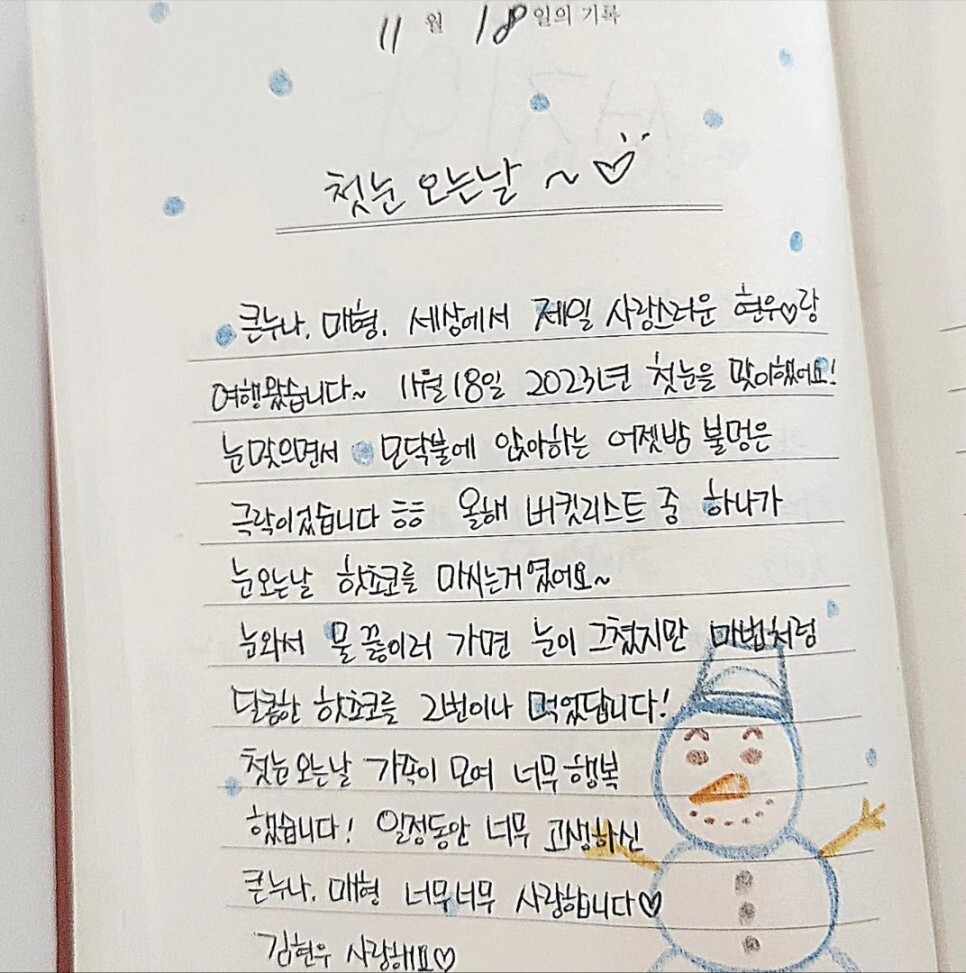 11월 18일의 기록
첫눈 오는날 ~ ♡
큰누나, 매형, 세상에서 제일 사랑스러운 현우♡랑
여행왔습니다~ 11월 18일 2023년 첫눈을 맞이했어요!
눈맞으면서 모닥불에 앉아하는 어젯밤 불멍은
극락이었습니다 ㅎㅎ 올해 버킷리스트 중 하나가
눈오는날 핫쵸코를 마시는거였어요~
눈와서 물 끓이러 가면 눈이 그쳤지만 마법처럼
달콤한 핫쵸코를 2번이나 먹었답니다!
첫눈 오는날 가족이 모여 너무 행복
했습니다! 일정동안 너무 고생하신
큰누나, 매형 너무너무 사랑합니다♡
김현우 사랑해요♡